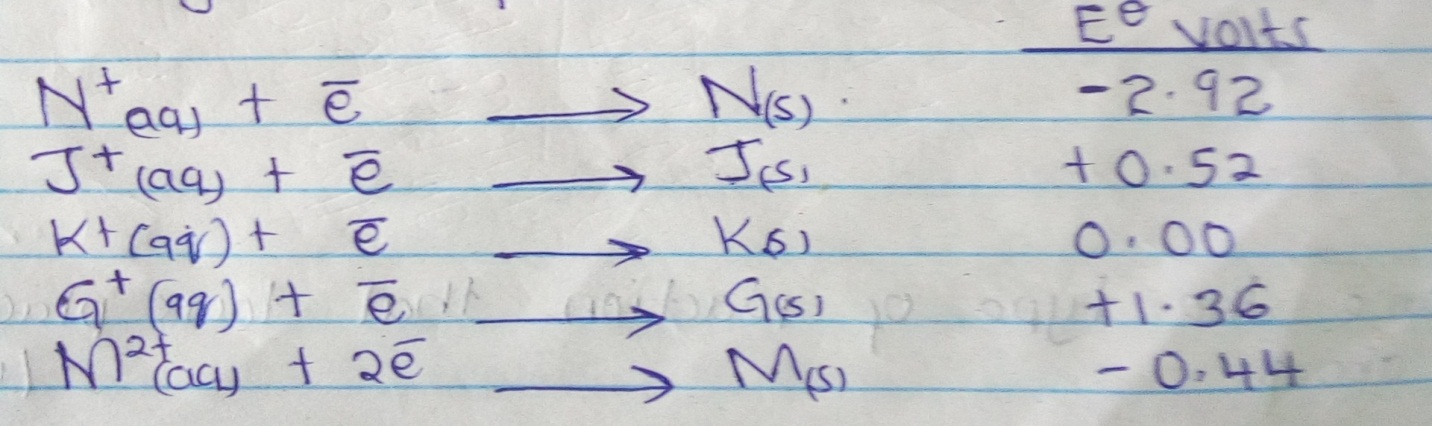 E^θ volts
N⁺ aq) + e̅ → N(s) . -2.92
J⁺ (aq) + e̅ → J(s) +0.52
K+ (aq) + e̅ → K(s) 0.00
G⁺ (aq) + e̅ → G(s) +1.36
M²⁺ (aq) + 2e̅ → M(s) - 0.44